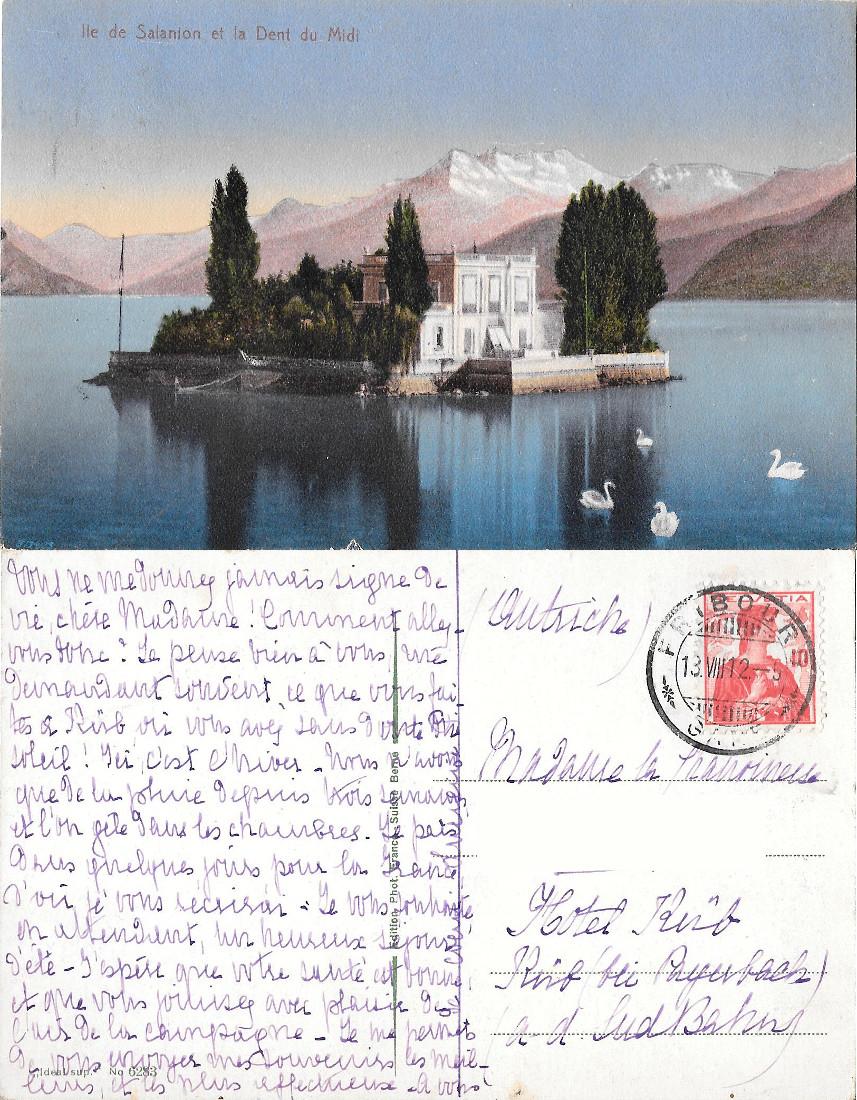 Ile de Salanion et la Dent du Midi
Vous ne me donnez jamais signe de
vie, chère Madame ! Comment allez-
vous donc ? Je pense bien à vous, me
demandant souvent ce que vous fai-
tes à Küb où vous avez sans doute du
soleil ! Ici, c'est l'hiver - Nous n'avons
que de la pluie depuis trois semaines
et l'on gèle dans les chambres. Je pars
dans quelques jours pour la France,
d'où je vous récrirai - Je vous souhaite
en attendant, un heureux séjour
d'été - J'espère que votre santé est bonne,
et que vous jouissez avec plaisir de
l'air de la campagne - Je me permets
de vous envoyer mes souvenirs les meil-
leurs et les plus affectueux - à vous
(Autriche)
HELVETIA
10
FRIBOURG
13.VIII.12.-5
GARE
Madame la
Hôtel Küb
Küb (bei Payerbach)
a. d. Südbahn
Edition Phot. Franco-Suisse, Berne
"Ideal sup." No 6283